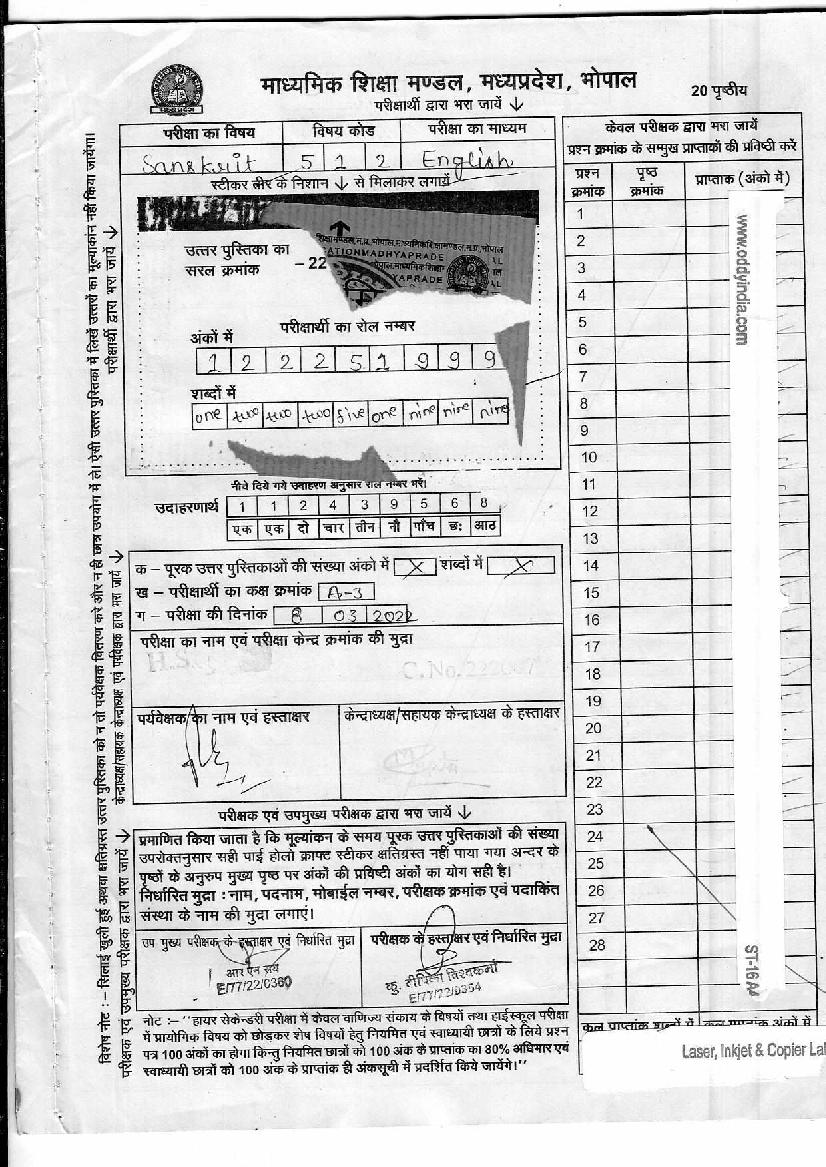 माध्यमिक शिक्षा मण्डल, मध्यप्रदेश, भोपाल
20 पृष्ठीय
परीक्षार्थी द्वारा भरा जायें ↓
परीक्षा का विषय विषय कोड परीक्षा का माध्यम
Sanskrit 5 1 2 English
स्टीकर तीर के निशान ↓ से मिलाकर लगायें
उत्तर पुस्तिका का
सरल क्रमांक - 22
ATIONMADHYAPRADE
YAPRADE
परीक्षार्थी का रोल नम्बर
अंकों में
1 2 2 2 5 1 9 9 9
शब्दों में
one two two two five one nine nine nine
नीचे दिये गये उदाहरण अनुसार रोल नम्बर भरें।
उदाहरणार्थ 1 1 2 4 3 9 5 6 8
एक एक दो चार तीन नौ पाँच छः आठ
क – पूरक उत्तर पुस्तिकाओं की संख्या अंकों में X शब्दों में X
ख – परीक्षार्थी का कक्ष क्रमांक A-3
ग – परीक्षा की दिनांक 8 03 2022
परीक्षा का नाम एवं परीक्षा केन्द्र क्रमांक की मुद्रा
पर्यवेक्षक का नाम एवं हस्ताक्षर
केन्द्राध्यक्ष/सहायक केन्द्राध्यक्ष के हस्ताक्षर
परीक्षक एवं उपमुख्य परीक्षक द्वारा भरा जायें ↓
प्रमाणित किया जाता है कि मूल्यांकन के समय पूरक उत्तर पुस्तिकाओं की संख्या
उपरोक्तनुसार सही पाई होलो क्राफ्ट स्टीकर क्षतिग्रस्त नहीं पाया गया अन्दर के
पृष्ठों के अनुरुप मुख्य पृष्ठ पर अंकों की प्रविष्टी अंकों का योग सही है।
निर्धारित मुद्रा : नाम, पदनाम, मोबाईल नम्बर, परीक्षक क्रमांक एवं पदाकिंत
संस्था के नाम की मुद्रा लगाएं।
उप मुख्य परीक्षक के हस्ताक्षर एवं निर्धारित मुद्रा
E/77/22/0360
परीक्षक के हस्ताक्षर एवं निर्धारित मुद्रा
E/77/22/0354
नोट :– "हायर सेकेन्डरी परीक्षा में केवल वाणिज्य संकाय के विषयों तथा हाईस्कूल परीक्षा
में प्रायोगिक विषय को छोड़कर शेष विषयों हेतु नियमित एवं स्वाध्यायी छात्रों के लिये प्रश्न
पत्र 100 अंकों का होगा किन्तु नियमित छात्रों को 100 अंक के प्राप्तांक का 80% अधिभार एवं
स्वाध्यायी छात्रों को 100 अंक के प्राप्तांक ही अंकसूची में प्रदर्शित किये जायेंगे।"
विशेष नोट :– सिलाई खुली हुई अथवा क्षतिग्रस्त उत्तर पुस्तिका को न तो पर्यवेक्षक वितरण करें और न ही छात्र उपयोग में लें। ऐसी उत्तर पुस्तिका में लिखें उत्तरों का मूल्यांकन नहीं किया जायेगा।
परीक्षक एवं उपमुख्य परीक्षक द्वारा भरा जायें ↓
केन्द्राध्यक्ष/सहायक केन्द्राध्यक्ष एवं पर्यवेक्षक द्वारा भरा जायें ↓
परीक्षार्थी द्वारा भरा जायें ↓
केवल परीक्षक द्वारा भरा जायें
प्रश्न क्रमांक के सम्मुख प्राप्तांकों की प्रविष्ठी करें
प्रश्न क्रमांक
पृष्ठ क्रमांक
प्राप्ताक (अंको में)
1
2
3
4
5
6
7
8
9
10
11
12
13
14
15
16
17
18
19
20
21
22
23
24
25
26
27
28
कुल प्राप्तांक शब्दों में
www.oddyindia.com
ST-16A4
Laser, Inkjet & Copier